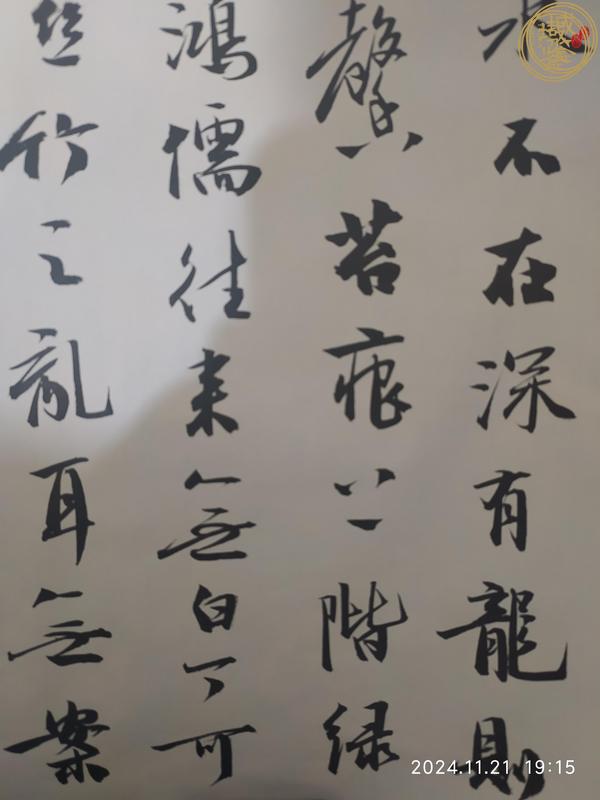 水不在深有龍則
馨苔痕上階綠
鴻儒往来無白丁可
丝竹之亂耳無案
2024.11.21 19:15